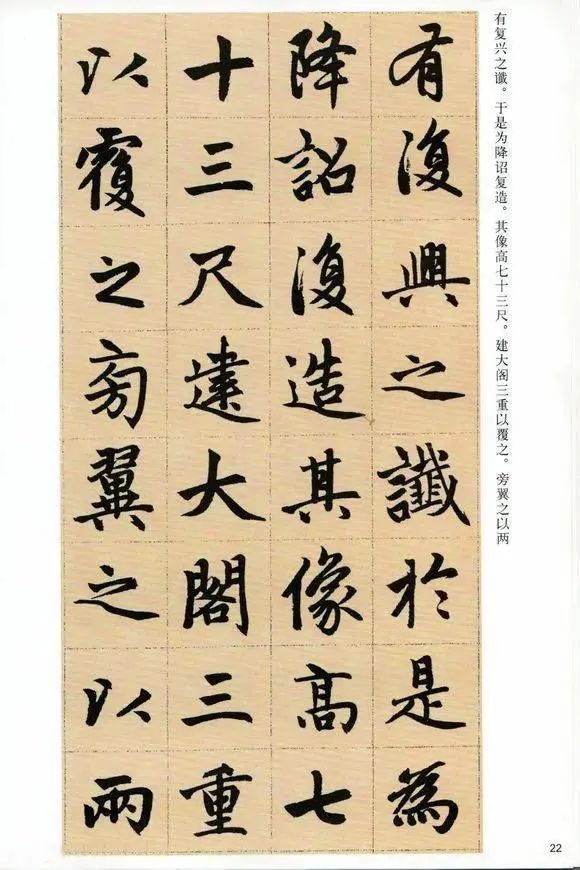 有复兴之谶。于是为降诏复造。其像高七十三尺。建大阁三重以覆之。旁翼之以两
有復興之讖於是為
降詔復造其像高七
十三尺建大閣三重
以覆之旁翼之以兩
22